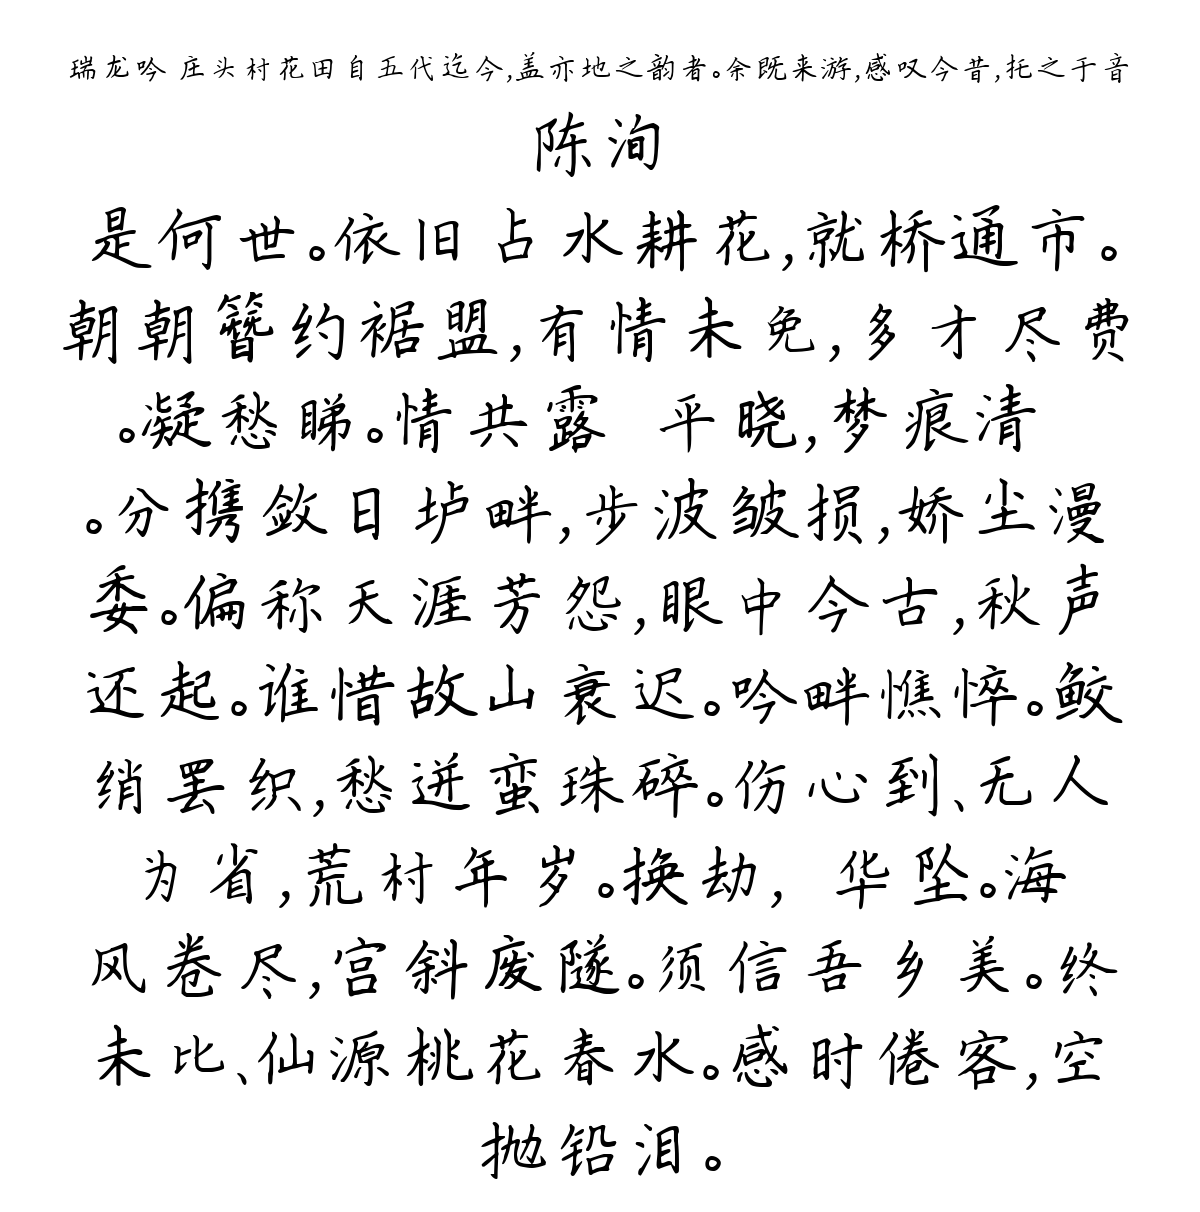 瑞龙吟 庄头村花田自五代迄今,盖亦地之韵者。余既来游,感叹今昔,托之于音
陈洵
是何世。依旧占水耕花,就桥通市。
朝朝簪约裾盟,有情未免,多才尽费
。凝愁睇。情共露 平晓,梦痕清
。分携敛日垆畔,步波皱损,娇尘漫
委。偏称天涯芳怨,眼中今古,秋声
还起。谁惜故山衰迟。吟畔憔悴。鲛
绡罢织,愁迸蛮珠碎。伤心到、无人
为省,荒村年岁。换劫, 华坠。海
风卷尽,宫斜废隧。须信吾乡美。终
未比、仙源桃花春水。感时倦客,空
抛铅泪。